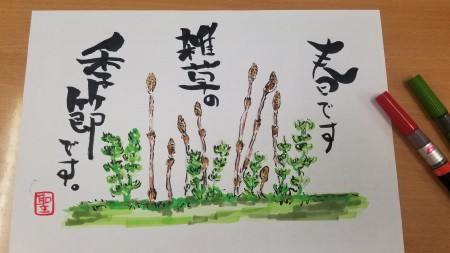 春です
雑草の
季節です。
聖